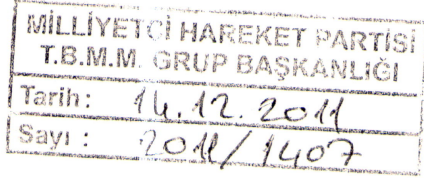 MİLLİYETÇİ HAREKET PARTİSİ
T.B.M.M. GRUP BAŞKANLIĞI
Tarih: 14.12.2011
Sayı : 2011/1407